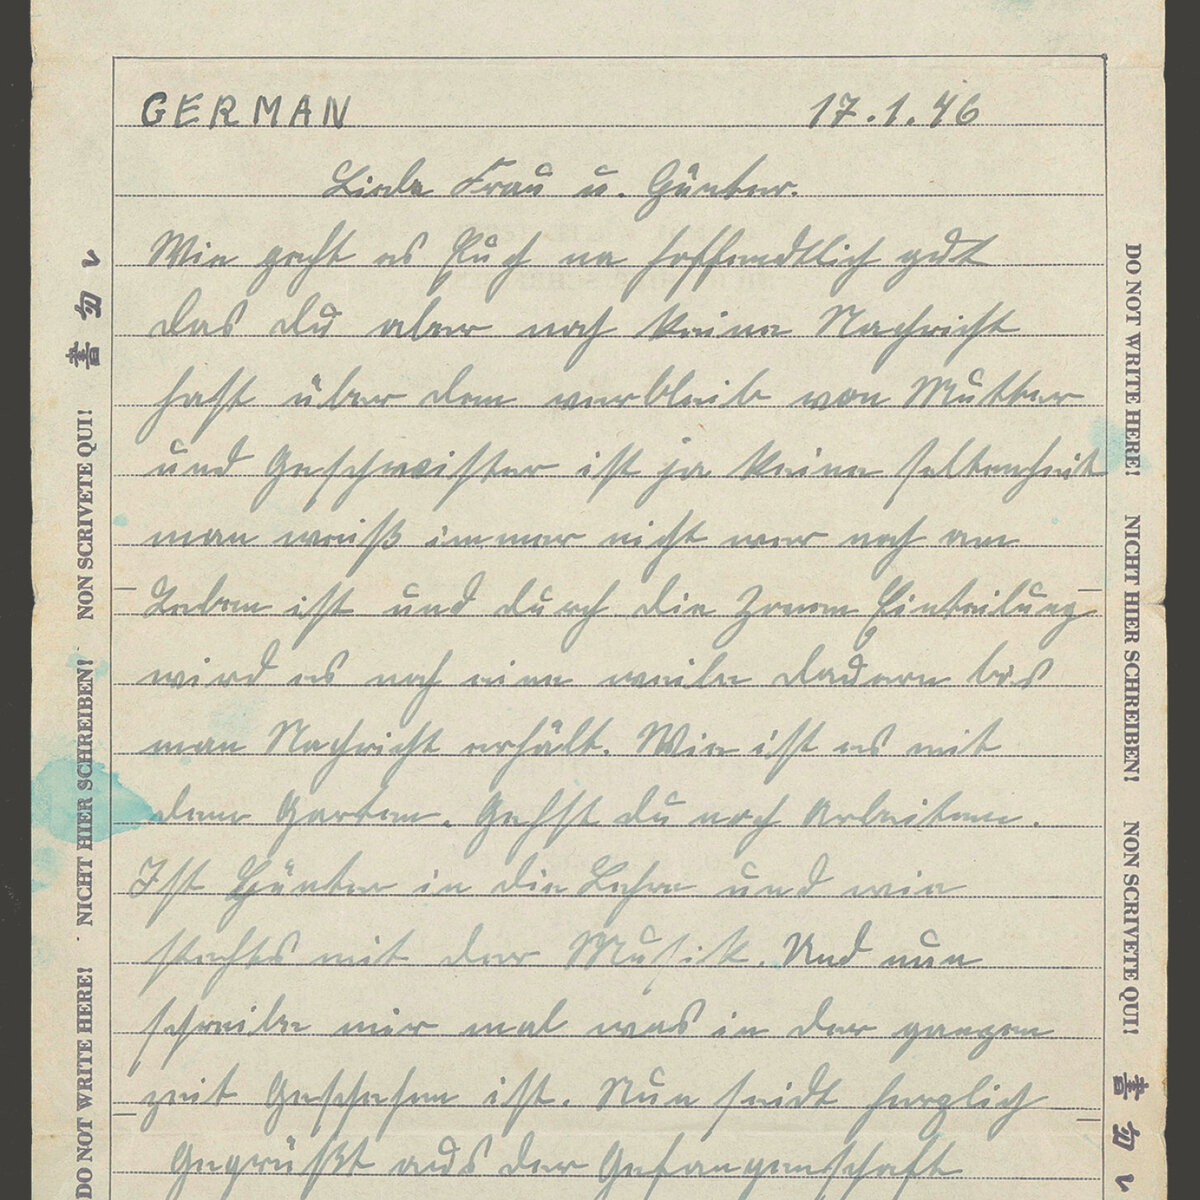 GERMAN 17.1.46
Liebe Frau u. Günter.
Wie geht es Euch na hoffendtlich gut
das du aber noch keine Nachricht
hast über dem verbleib von Mutter
und Geschweister ist ja keine seltenheit
man weiß immer nicht wer noch am
Leben ist und durch die Zonen Einteilung
wird es noch eine weile dauern bis
man Nachricht erhält. Wie ist es mit
dem Garten. Gehst du noch Arbeiten.
Ist Günter in die Lehre und wie
stehts mit der Musik. Und nun
schreibe mir mal was in der ganzen
zeit Geschehen ist. Nun seidt herzlich
Gegrüßt aus der Gefangenschaft
DO NOT WRITE HERE! NICHT HIER SCHREIBEN! NON SCRIVETE QUI! 書勿レ
DO NOT WRITE HERE! NICHT HIER SCHREIBEN! NON SCRIVETE QUI! 書勿レ